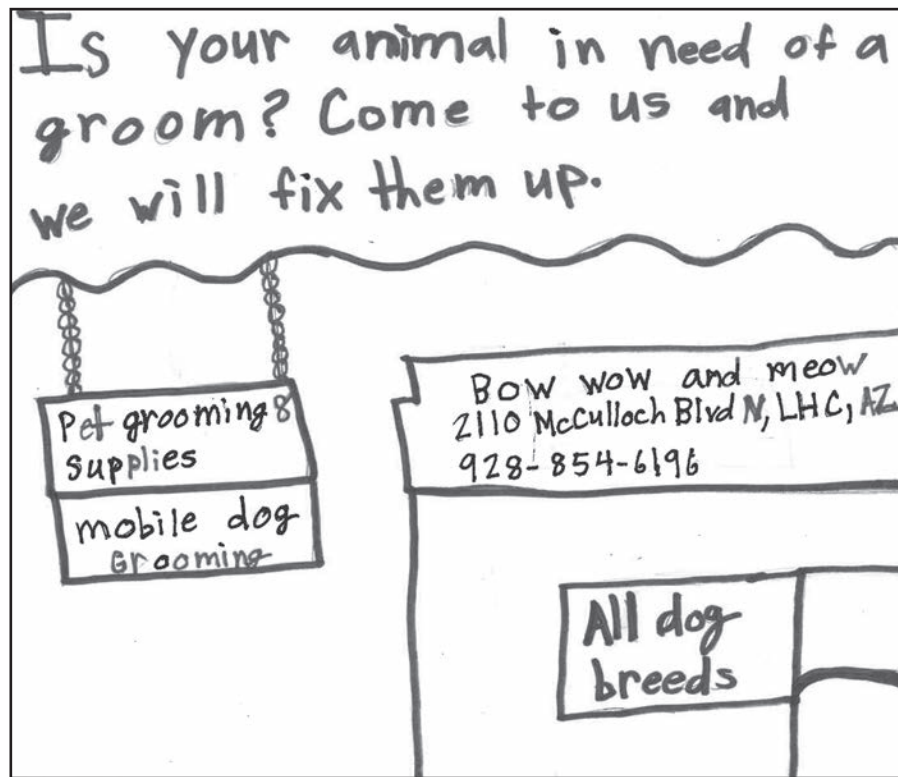 Is your animal in need of a
groom? Come to us and
we will fix them up.
Pet grooming &
supplies
mobile dog
Grooming
Bow wow and meow
2110 McCulloch Blvd N, LHC, AZ
928-854-6196
All dog
breeds